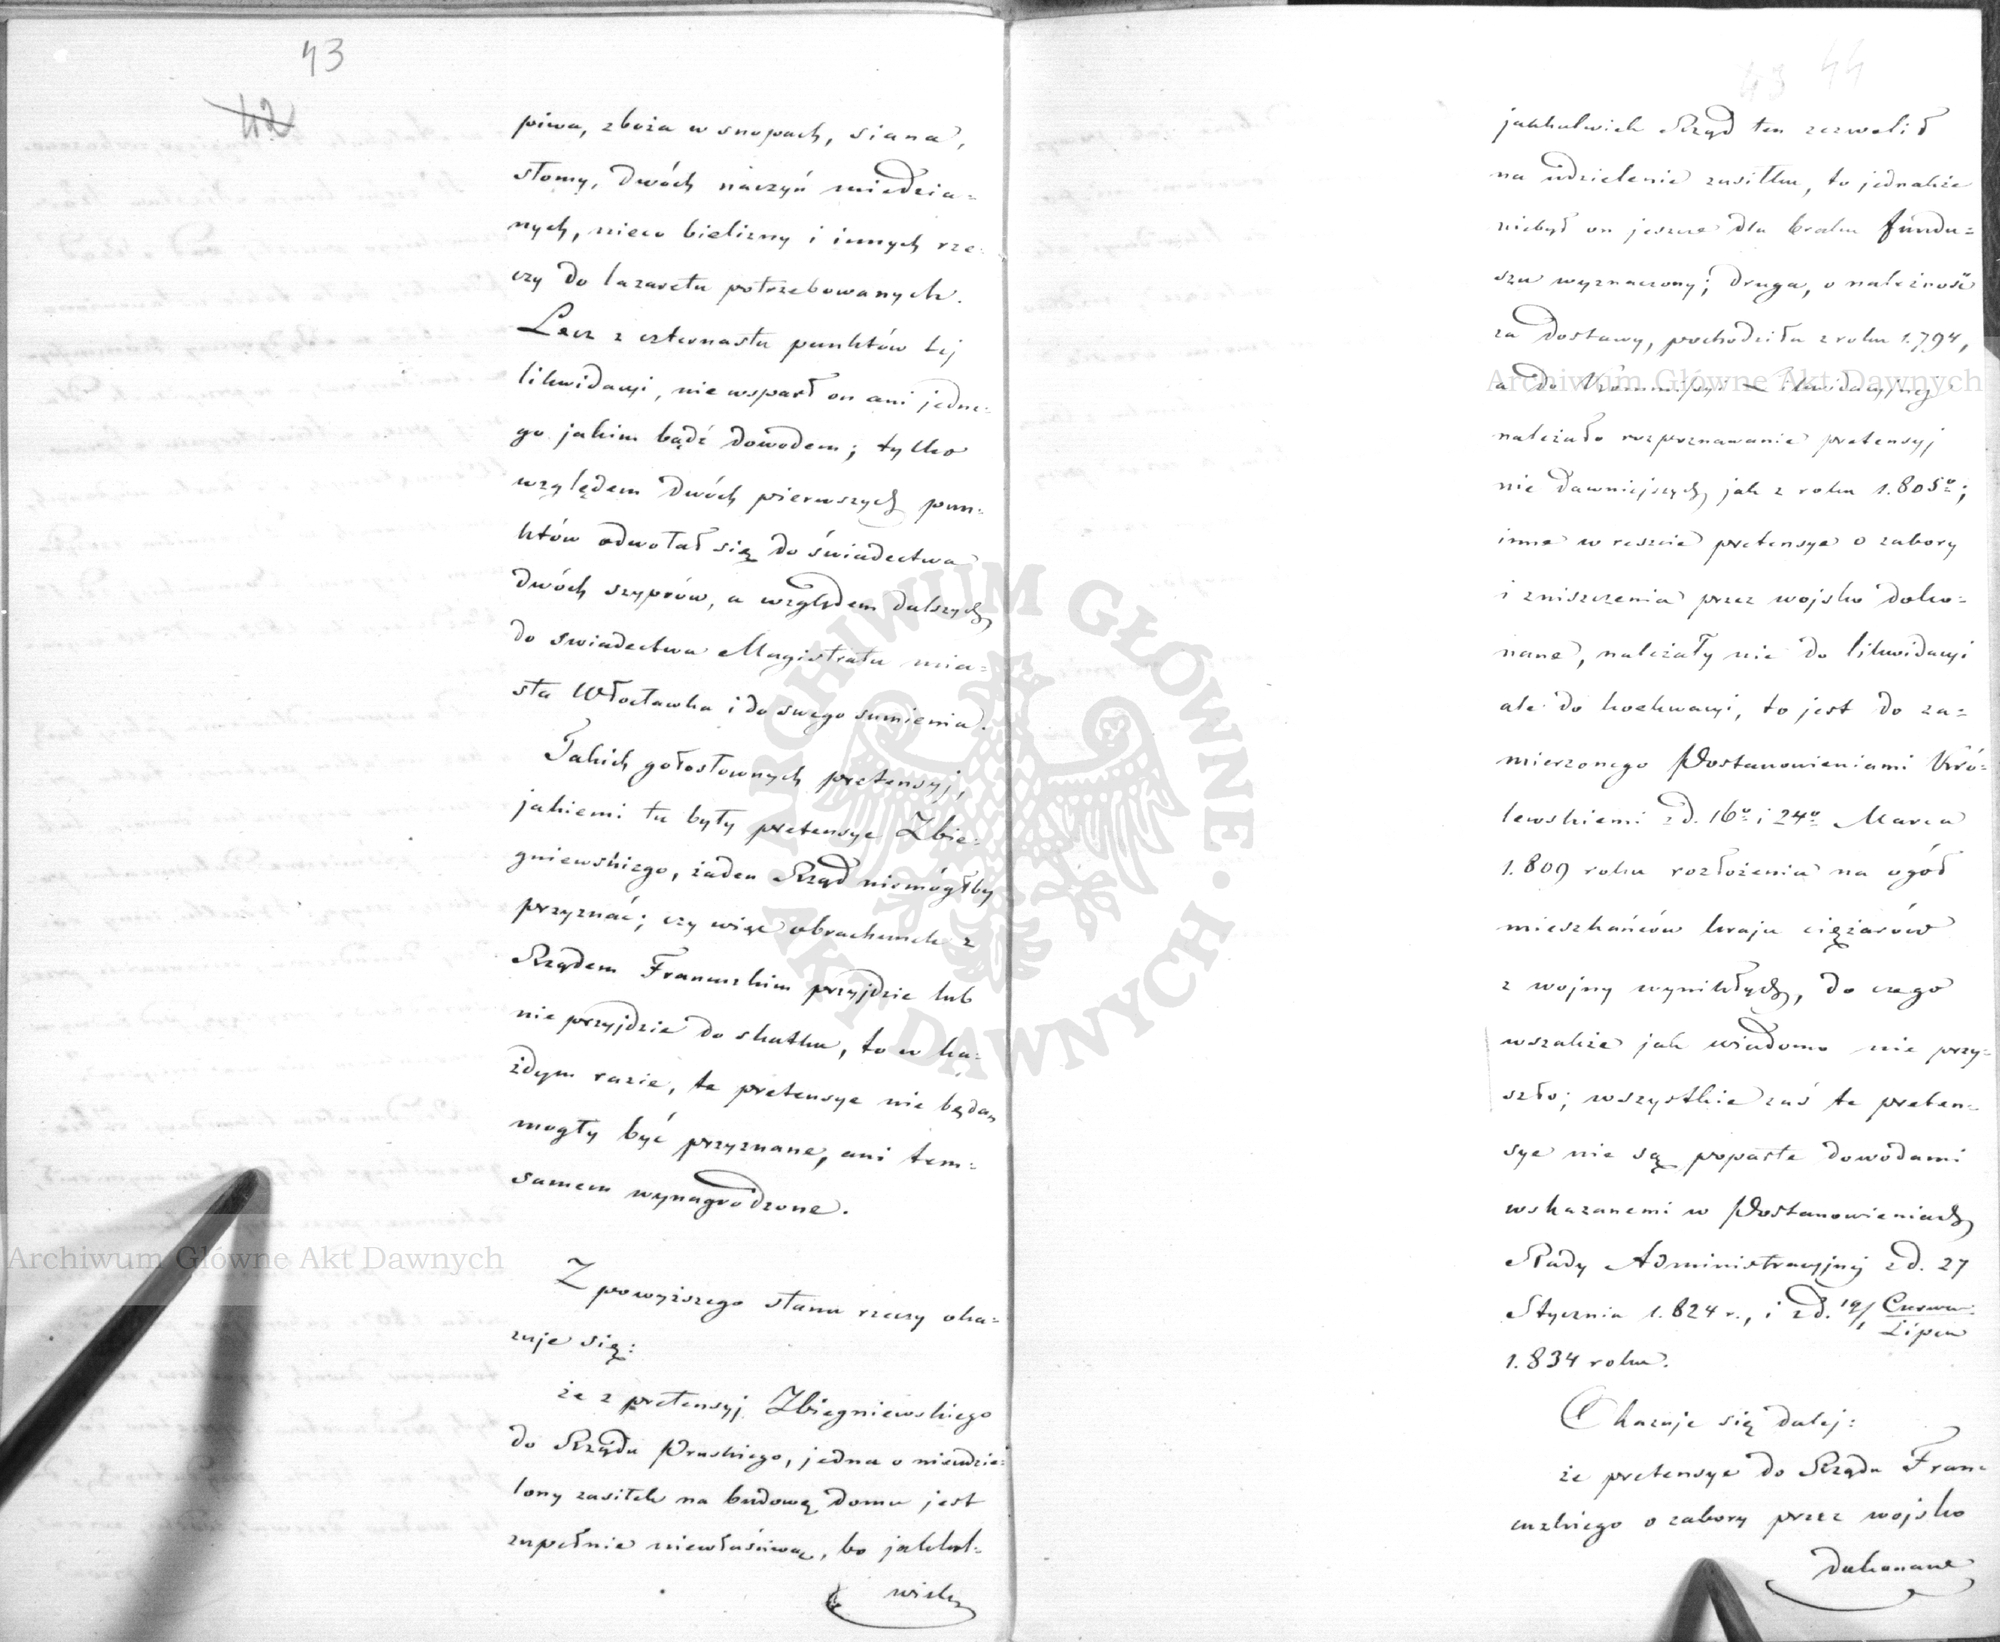 43
42
piwa, zboża w snopach, siana,
słomy, dwóch naczyń miedzia=
nych, nieco bielizny i innych rze=
czy do lazaretu potrzebowanych.
Lecz z czternastu punktów tej
likwidacyi, nie wsparł on ani jedne=
go jakim bądź dowodem; tylko
względem dwóch pierwszych pun=
któw odwołał się do świadectwa
dwóch szyprów, a względem dalszych
do świadectwa Magistratu mia=
sta Włocławka i do swego sumienia.
Takich gołosłownych pretensyj,
jakiemi tu były pretensye Zbie=
gniewskiego, żaden Rząd niemógłby
przyznać; czy więc obrachunek z
Rządem Francuzkim przyjdzie lub
nie przyjdzie do skutku, to w ka=
żdym razie, te pretensye nie będą
mogły być przyznane, ani tem=
samem wynagrodzone.
Z powyższego stanu rzeczy oka=
zuje się:
że z pretensyj Zbiegniewskiego
do Rządu Pruskiego, jedna o nieudzie=
lony zasiłek na budowę domu jest
zupełnie niewłaściwą, bo jakkol=
wiek
43 44
jakkolwiek Rząd ten zezwolił
na udzielenie zasiłku, to jednakże
niebył on jeszcze dla braku fundu=
szu wyznaczony; druga, o należność
za dostawy, pochodziła z roku 1.794,
a do Kommissyi Likwidacyjnej
należało rozpoznawanie pretensyj
nie dawniejszych jak z roku 1.805º;
inne w reszcie pretensye o zabory
i zniszczenia przez wojsko doko=
nane, należały nie do likwidacyi
ale do koekwacyi, to jest do za=
mierzonego Postanowieniami Kró=
lewskiemi z d. 16º i 24º Marca
1.809 roku rozłożenia na ogół
mieszkańców kraju ciężarów
z wojny wynikłych, do czego
wszakże jak wiadomo nie przy=
szło; wszystkie zaś te preten=
sye nie są poparte dowodami
wskazanemi w Postanowieniach
Rady Administracyjnej z d. 27
Stycznia 1.824 r., i z d. 19/1 Czerwca/Lipca
1.834 roku.
Okazuje się dalej:
że pretensye do Rządu Fran=
cuzkiego o zabory przez wojsko
dokonane
Archiwum Główne Akt Dawnych
Archiwum Główne Akt Dawnych
ARCHIWUM GŁÓWNE • AKT DAWNYCH •